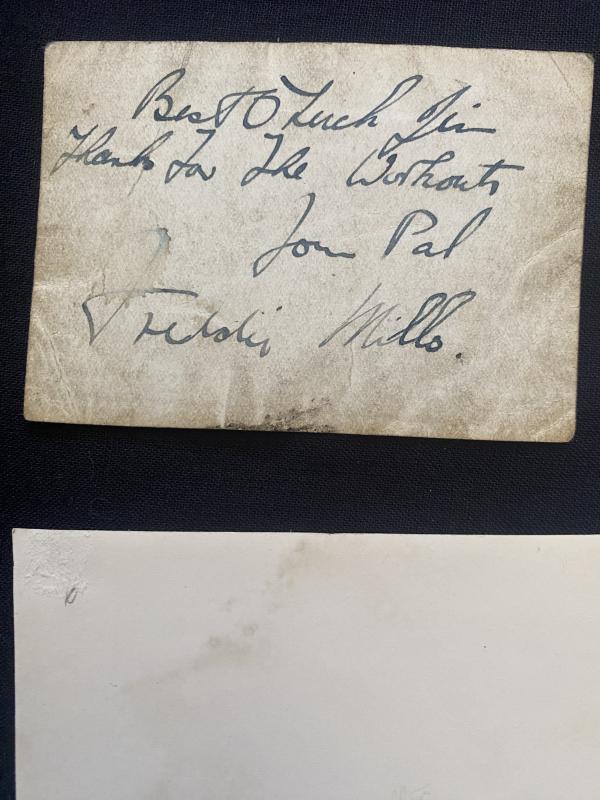 Best O Luck Jim
Thanks For The Workouts
Your Pal
Freddie Mills.